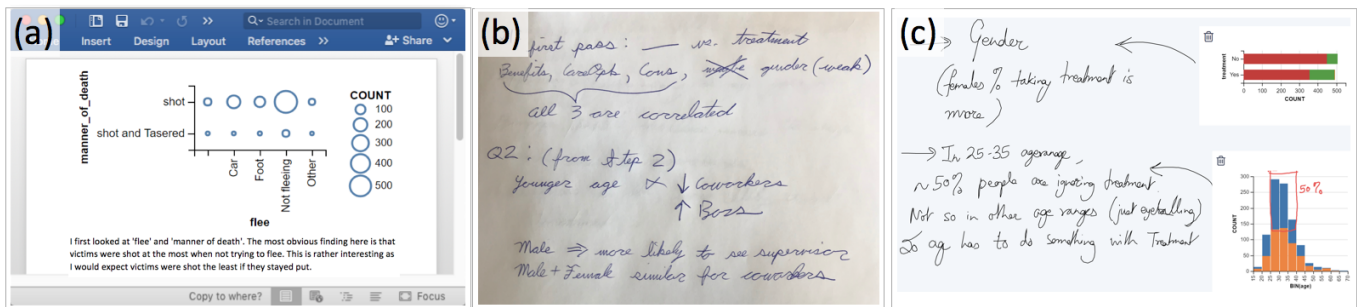 (a)
Search in Document
Insert Design Layout References Share
manner_of_death
shot
shot and Tasered
Car
Foot
Not fleeing
Other
flee
COUNT
100
200
300
400
500
I first looked at 'flee' and 'manner of death'. The most obvious finding here is that
victims were shot at the most when not trying to flee. This is rather interesting as
I would expect victims were shot the least if they stayed put.
Copy to where? Focus
(b)
first pass: ___ vs. treatment
Benefits, CareOpts, Cons, gender (weak)
all 3 are correlated
Q2: (from Step 2)
Younger age ↓ Coworkers
↑ Boss
Male ⇒ more likely to see supervisor
Male + Female similar for coworkers
(c)
→ Gender
(females % taking treatment is
more)
→ In 25-35 agerange,
~50% people are ignoring treatment
Not so in other age ranges (just eyeballing)
So ag has to do something with Treatment
treatment
No
Yes
0 100 200 300 400 500
COUNT
50%
COUNT
300
250
200
150
100
50
0
15 20 25 30 35 40 45 50 55 60 65 70
BIN(age)